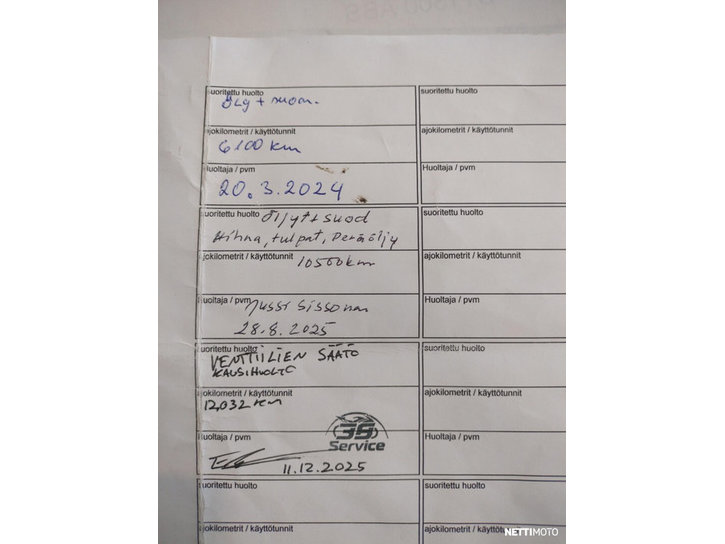 suoritettu huolto
suoritettu huolto
Öljy + suom.
ajokilometrit / käyttötunnit
ajokilometrit / käyttötunnit
6100 km
Huoltaja / pvm
Huoltaja / pvm
20.3.2024
suoritettu huolto
suoritettu huolto
Öljyt + suod
Hihna, tulpat, Peräöljy
ajokilometrit / käyttötunnit
ajokilometrit / käyttötunnit
10500km
Huoltaja / pvm
Huoltaja / pvm
Jussi Sissonen
28.8.2025
suoritettu huolto
suoritettu huolto
VENTTIILIEN SÄÄTÖ
KAUSIHUOLTO
ajokilometrit / käyttötunnit
ajokilometrit / käyttötunnit
12032 km
Huoltaja / pvm
Huoltaja / pvm
Service
11.12.2025
suoritettu huolto
suoritettu huolto
ajokilometrit / käyttötunnit
ajokilometrit / käyttötunnit
NETTIMOTO